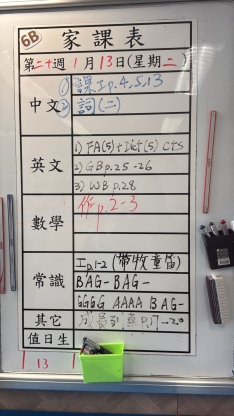 6B
家課表
第二十週 1月13日(星期二)
中文
① 課工p.4,5,13
② 詞(二)
英文
1) FA(5) + Dict(5) cts
2) GB p.25-26
3) WB p.28
數學
作p.2-3
常識
工p.1-2 (帶牧童笛)
BAG- BAG-
GGGG AAAA BAG-
其它
p.17-20
值日生
1 13 1